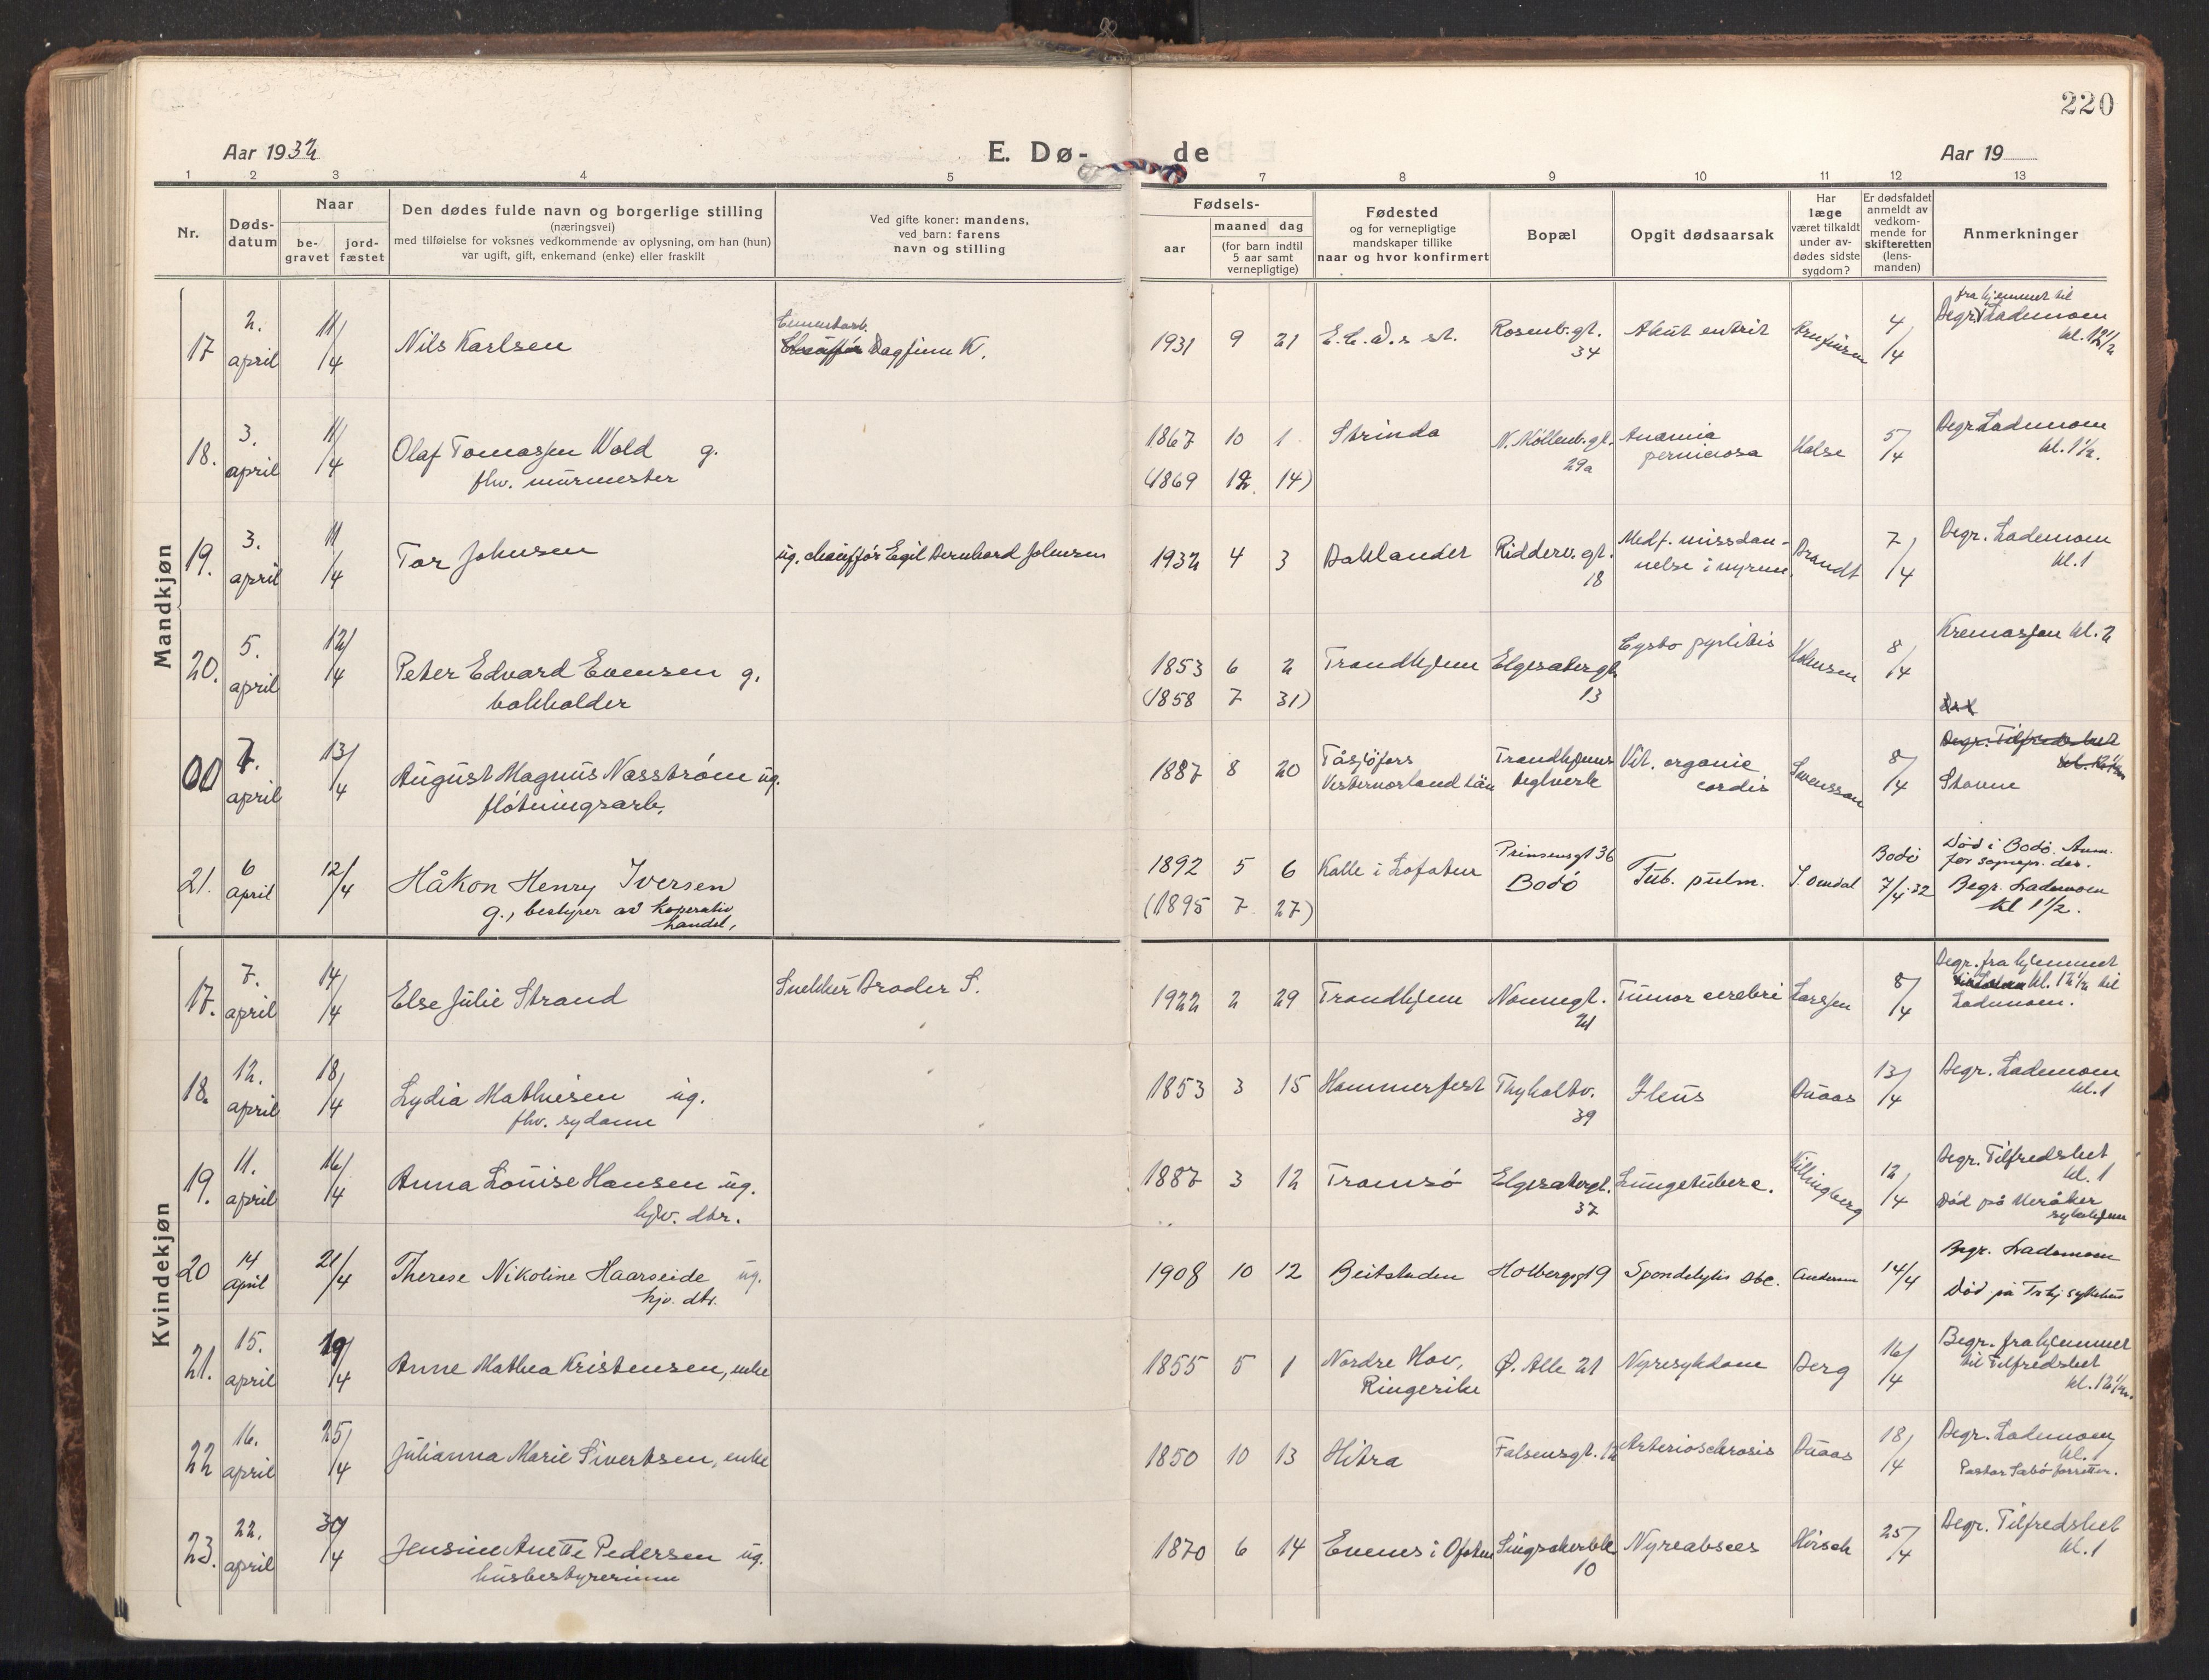 220
Aar 1932
E. Dø- de
Aar 19
1 2 3 4 5 7 8 9 10 11 12 13
Nr.
Døds-
datum
Naar
be-
gravet
jord-
fæstet
Den dødes fulde navn og borgerlige stilling
(næringsvei)
med tilføielse for voksnes vedkommende av oplysning, om han (hun)
var ugift, gift, enkemand (enke) eller fraskilt
Ved gifte koner: mandens,
ved barn: farens
navn og stilling
Fødsels-
aar
maaned dag
(for barn indtil
5 aar samt
vernepligtige)
Fødested
og for vernepligtige
mandskaper tillike
naar og hvor konfirmert
Bopæl
Opgit dødsaarsak
Har
læge
været tilkaldt
under av-
dødes sidste
sygdom?
Er dødsfaldet
anmeldt av
vedkom-
mende for
skifteretten
(lens-
manden)
Anmerkninger
Mandkjøn
17 2. april 11/4 Nils Karlsen Dagfinn K. 1931 9 21 E.C.D.s st. Rosenb.gt. 34 Akut entrit 4/4 fra hjemmet til
Begr. Lademoen
kl. 12 1/2
18. 3. april 11/4 Olaf Tomassen Wold g. 1867 10 1 Strinda N. Møllenb.gt. 29a Anæmia perniciosa Halse 5/4 Begr Lademoen
fhv. murmester (1869 12 14) kl. 1 1/2.
19. 3. april 11/4 Tor Johnsen ug. chauffør Egil Bernhard Johnsen 1932 4 3 Bakklandet Ridderv.gt. 18 Medf. missdan-
nelse i nyrene. Brandt 7/4 Begr. Lademoen
kl. 1
20. 5. april 12/4 Peter Edvard Evensen g. 1853 6 2 Trondhjem Elgesetergt. 13 Cysto pyelitis 8/4 Kremasjon kl. 2
bokholder (1858 7 31)
00 7. april 13/4 August Magnus Nasstrøm ug. 1887 8 20 Tåsjöfors
Vesternorland län Trondhjems
teglverk Vit. organic
cordis Svensson 8/4 Begr. Tilfredshet
fløtningsarb. Stavne
21. 6 april 12/4 Håkon Henry Iversen 1892 5 6 Kalle i Lofoten Prinsensgt 36
Bodø Tub. pulm. Bodø
7/4 32 Død i Bodø. Anm.
for sognepr. der.
g., bestyrer av koperativ
handel, (1895 7 27) Begr. Lademoen
kl 1 1/2.
Kvindekjøn
17. 7. april 14/4 Else Julie Strand Snekker Broder S. 1922 2 29 Trondhjem Nonnegt. 21 Tumor cerebri Larssen 8/4 Begr. fra hjemmet
kl. 12 1/2 til
Lademoen.
18. 12. april 18/4 Lydia Mathiesen ug. 1853 3 15 Hammerfest Thyholtv. 39 Ileus Duaas 13/4 Begr. Lademoen
fhv. sydame kl. 1
19. 11. april 16/4 Anna Louise Hansen ug. 1887 3 12 Tromsø Elgesetergt. 37 Lungetuberc. Killingberg 12/4 Begr. Tilfredshet
kl. 1
hjv. dtr. Død på Meråker
sykehjem
20 14 april 21/4 Therese Nikoline Haarseide ug. 1908 10 12 Beitstaden Holbergsgt 9 Spondylytis tbc. Andersen 14/4 Begr. Lademoen
hjv. dtr. Død på Trhj sykehus
21. 15. april 19/4 Anne Mathea Kristensen, enke 1855 5 1 Nordre Hov,
Ringerike Ø. Alle 21 Nyresykdom Berg 16/4 Begr. fra hjemmet
til Tilfredshet
kl. 12 1/2.
22 16. april 25/4 Julianna Marie Sivertsen, enke 1850 10 13 Hitra Falsensgt. 12 Arteriosclerosis Duaas 18/4 Begr. Lademoen
kl. 1
Pastor Sæbø forretter.
23. 22. april 30/4 Jensine Anette Pedersen ug. 1870 6 14 Evenes i Ofoten Singsakerbk. 10 Nyreabsces Hirsch 25/4 Begr. Tilfredshet
husbestyrerinne kl. 1